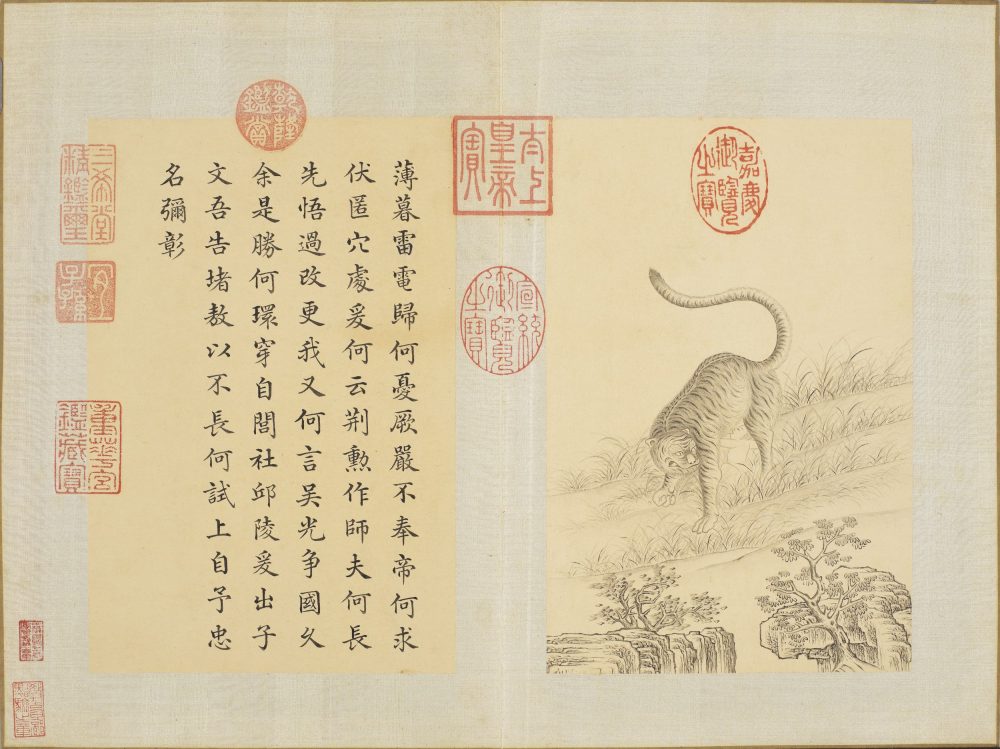 嘉慶御覽之寶
太上皇帝之寶
宣統御覽之寶
薄暮雷電歸何憂厥嚴不奉帝何求
伏匿穴處爰何云荆勲作師夫何長
先悟過改更我又何言吳光争國久
余是勝何環穿自閭社邱陵爰出子
文吾告堵敖以不長何試上自予忠
名彌彰
乾隆鑑賞
三希堂精鑑璽
宜子孫
重華宮鑑藏寶